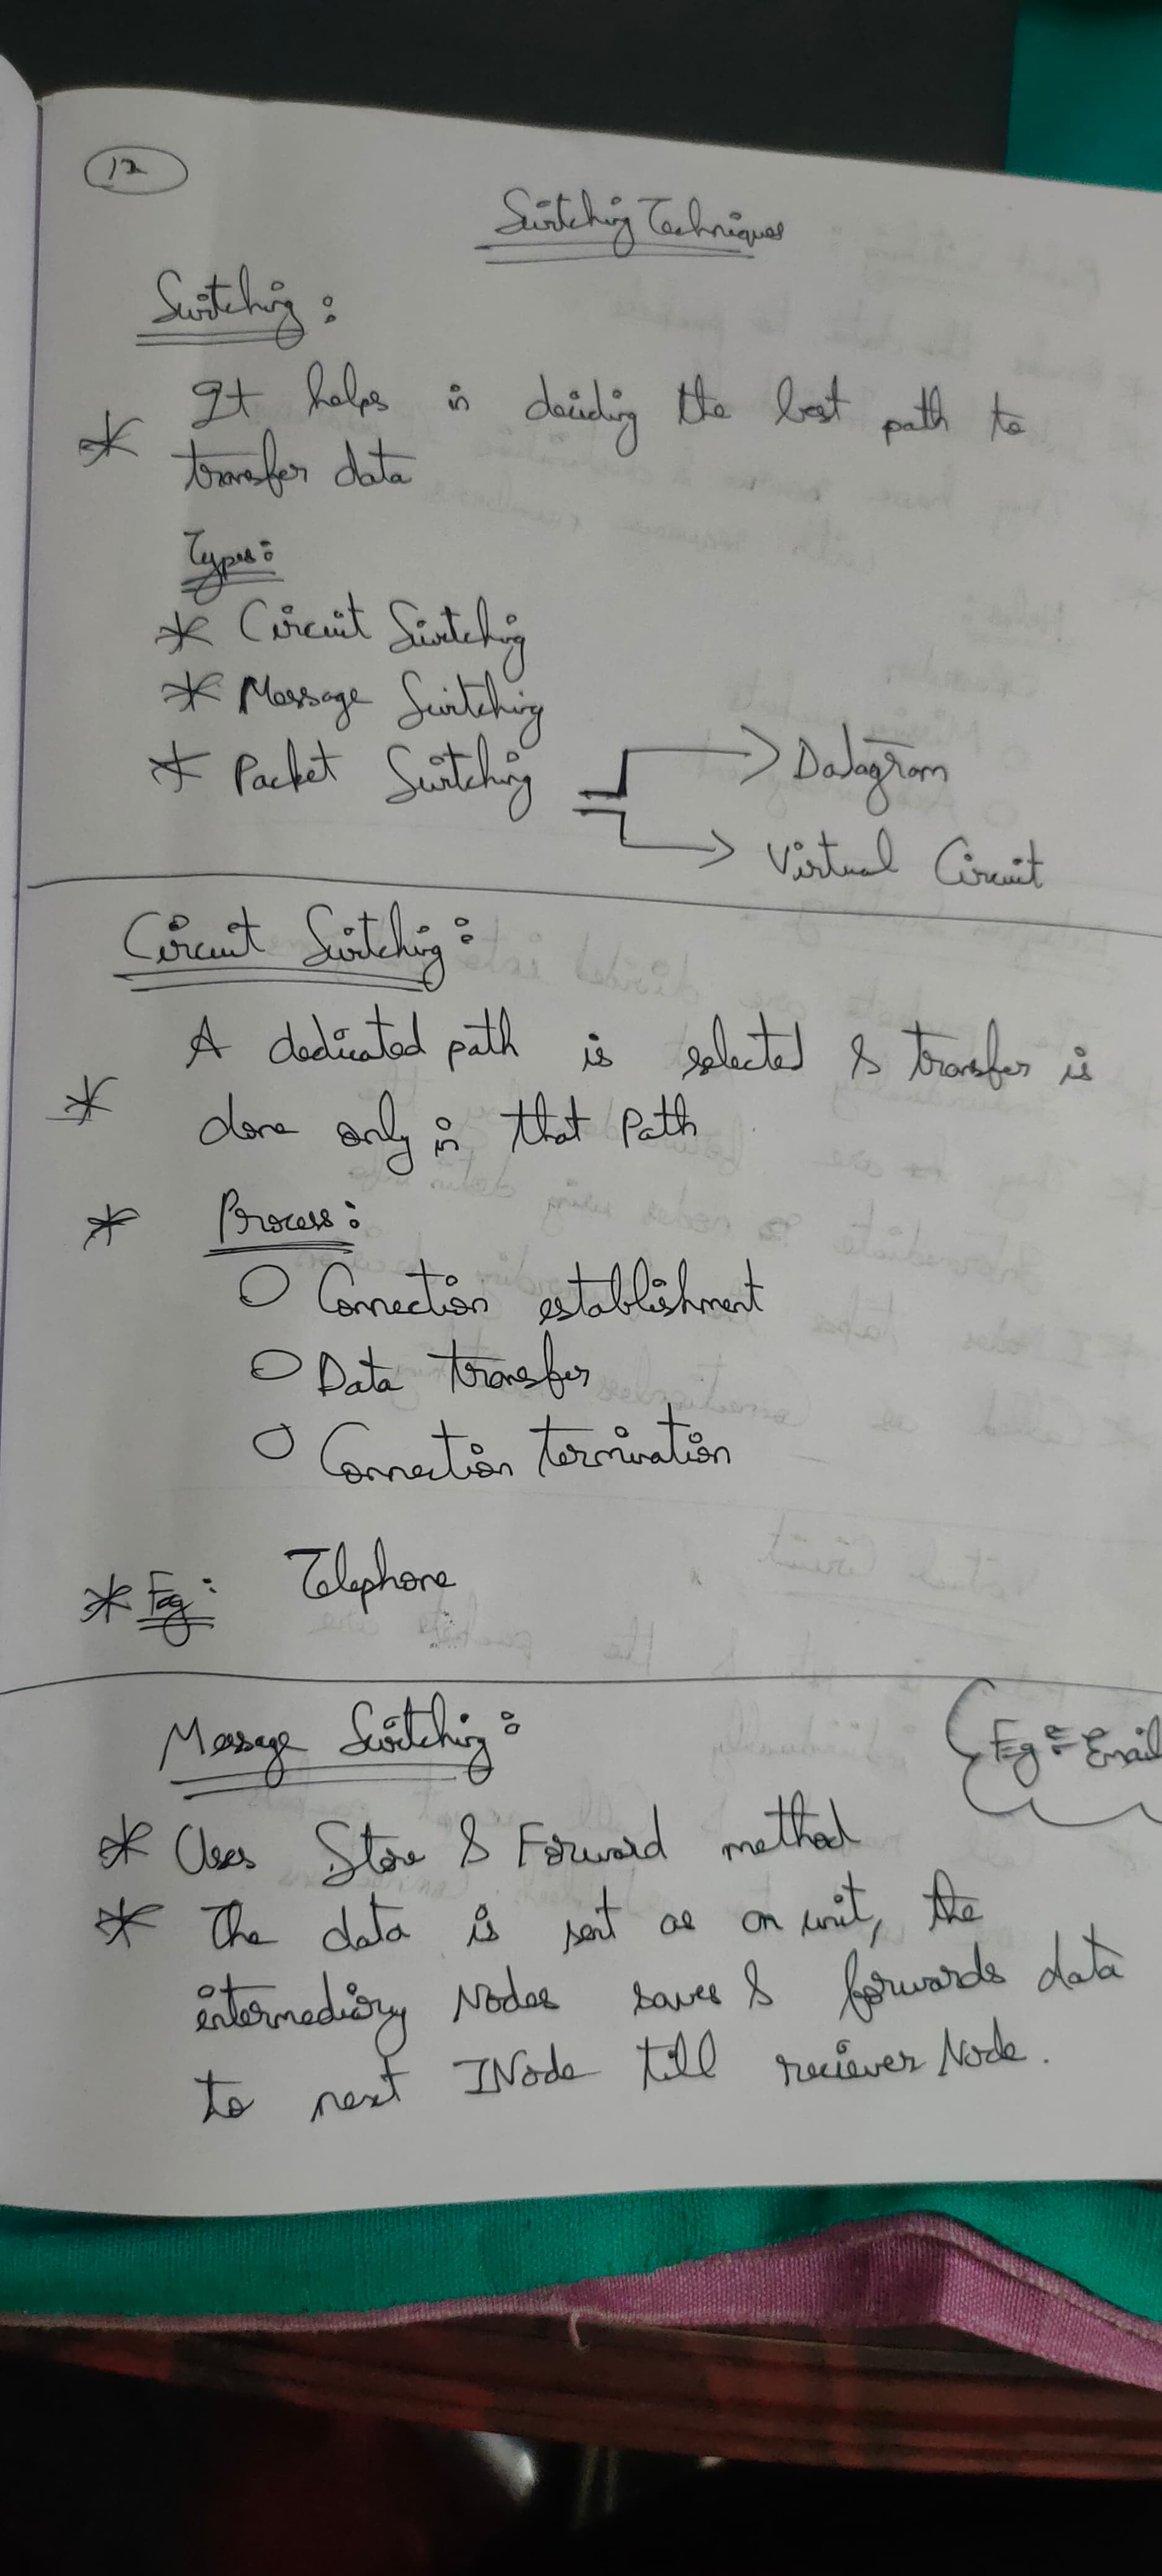 12
Switching Techniques
Switching:
* It helps in deciding the best path to
transfer data
Types:
* Circuit Switching
* Message Switching
* Packet Switching
Datagram
Virtual Circuit
Circuit Switching:
* A dedicated path is selected & transfer is
done only in that Path
* Process:
○ Connection establishment
○ Data transfer
○ Connection termination
* Eg: Telephone
Message Switching:
Eg: Email
* Uses Store & Forward method
* The data is sent as an unit, the
intermediary Nodes saves & forwards data
to next INode till reciever Node.